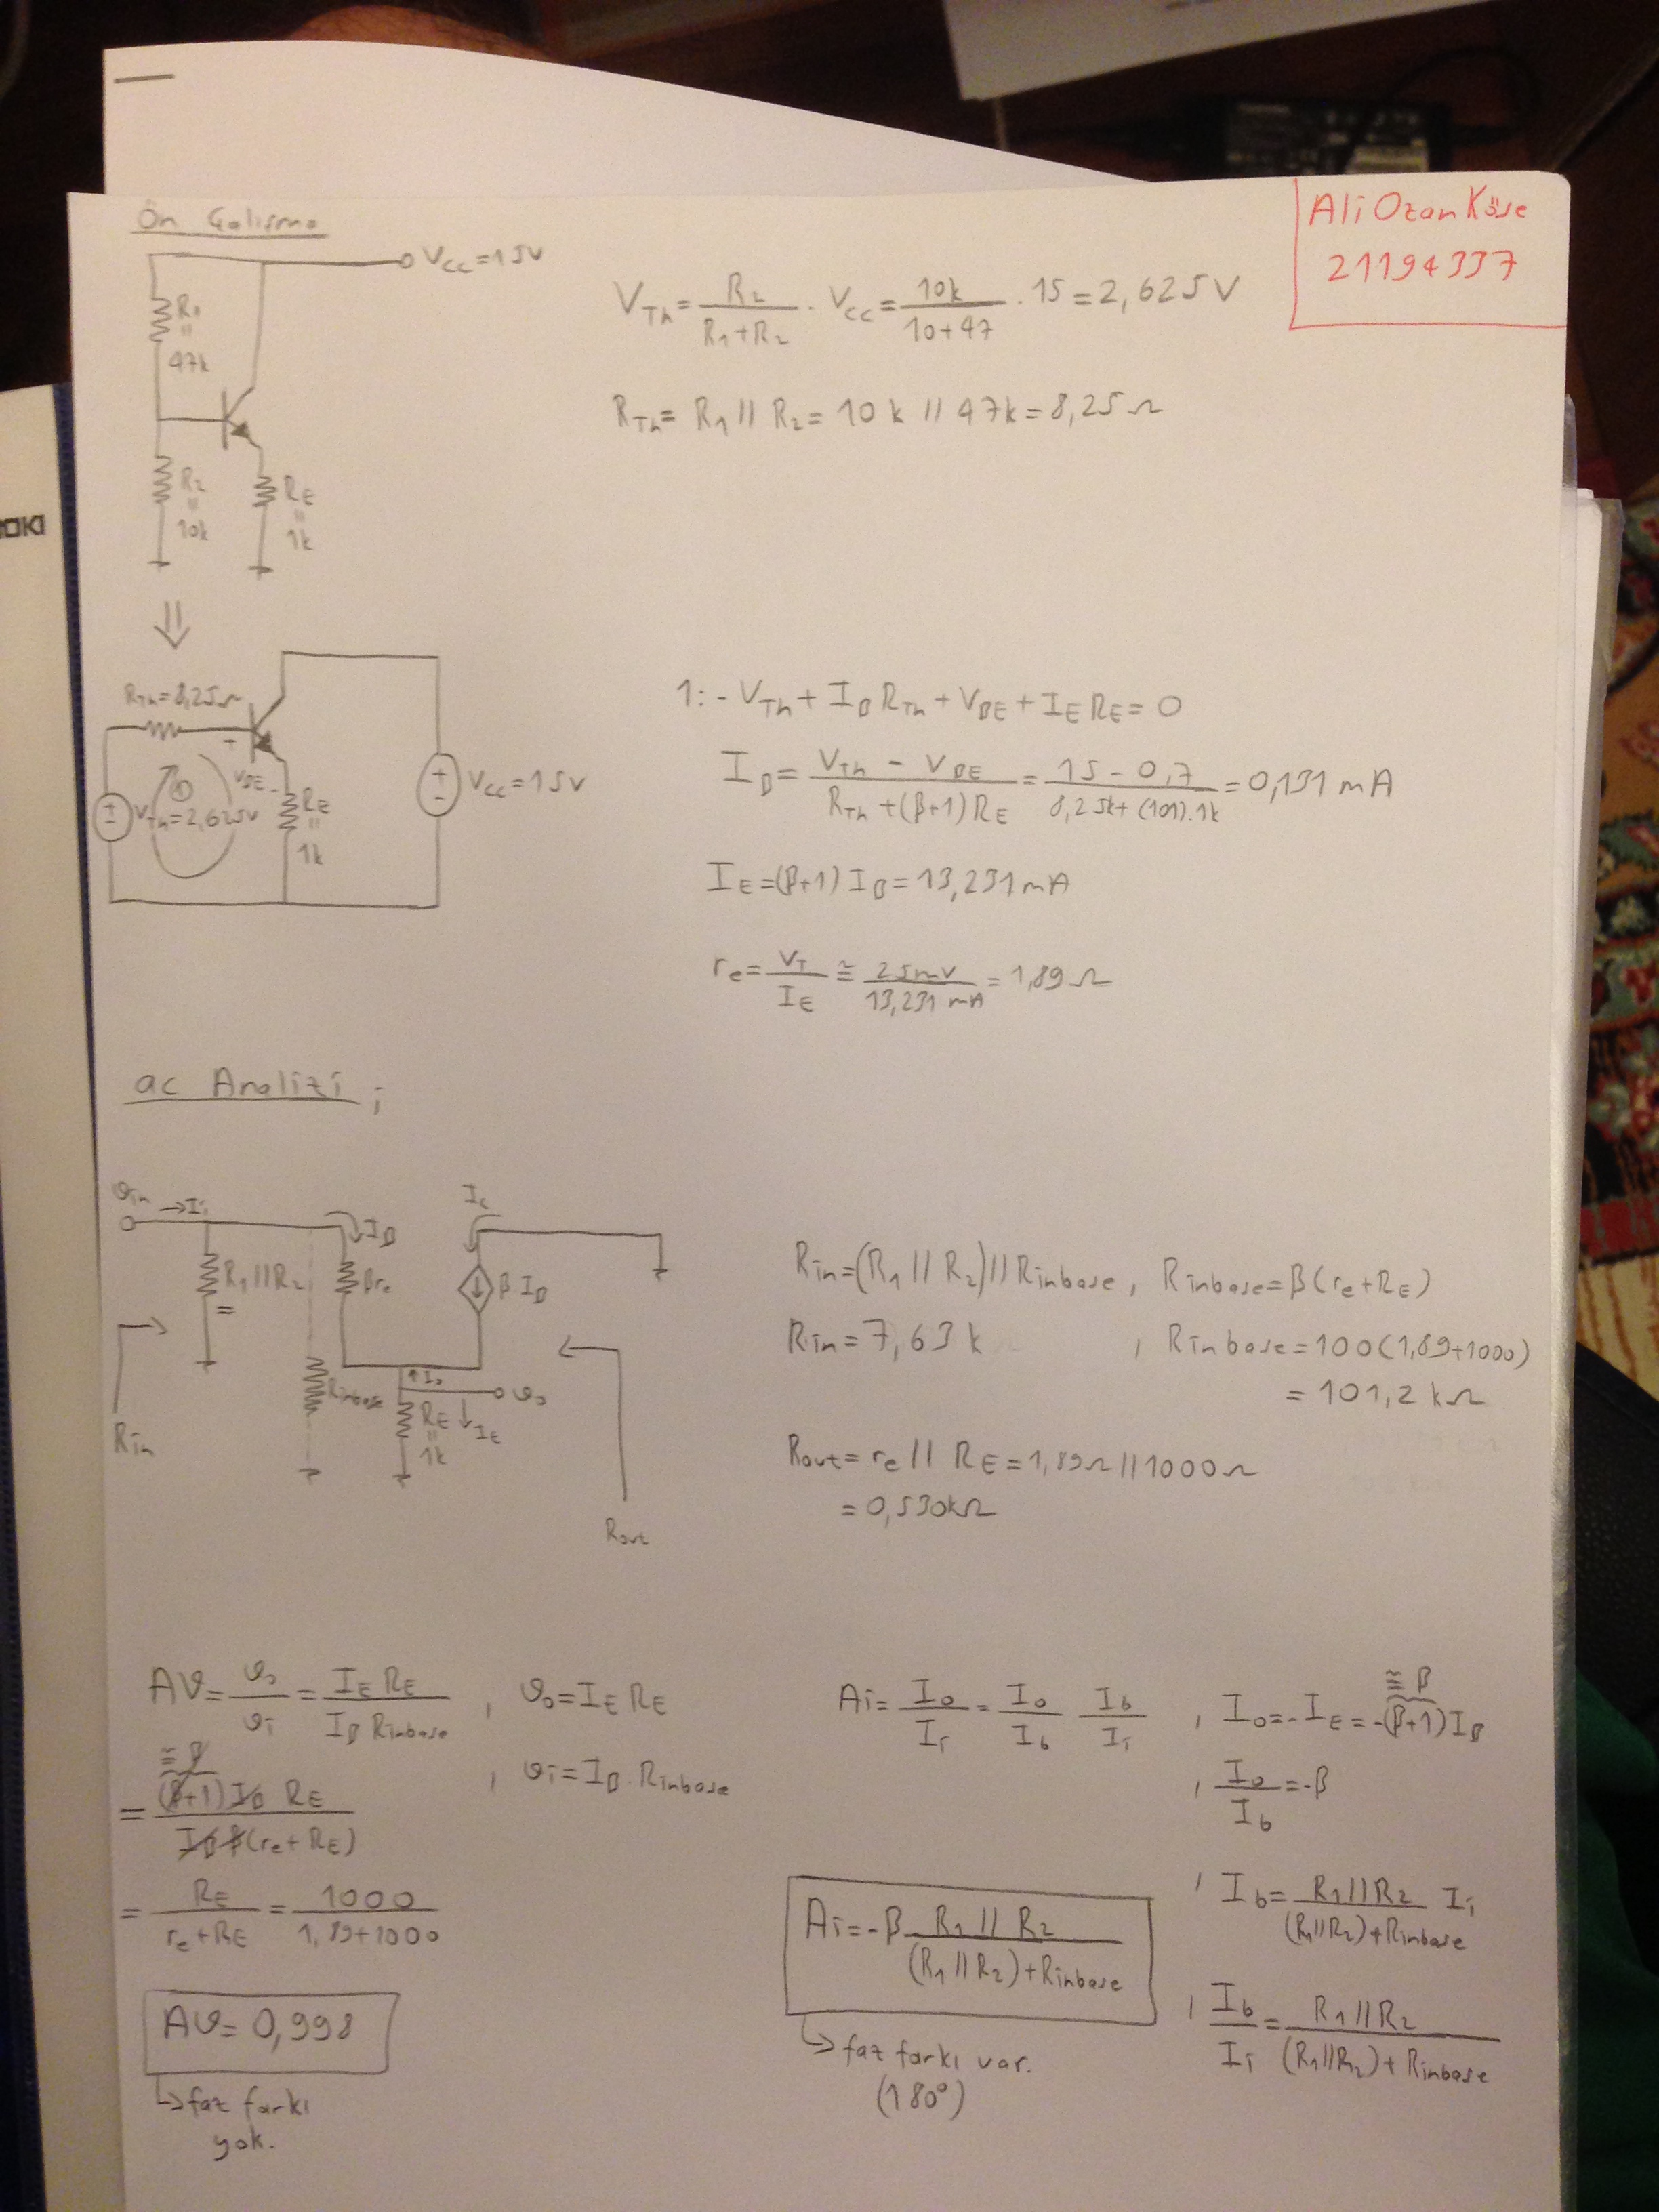 Ali Ozan Köse
21194337
Ön Çalışma
VCC=15V
R1
=
47k
R2
=
10k
RE
=
1k
VTh = R2 / (R1+R2) . VCC = 10k / (10+47) . 15 = 2,625V
RTh = R1 // R2 = 10k // 47k = 8,25Ω
⇓
RTh=8,25Ω
+
VBE -
1
VTh=2,625V
RE
=
1k
VCC=15V
1: -VTh + IB RTh + VBE + IE RE = 0
IB = (VTh - VBE) / (RTh + (β+1) RE) = (15 - 0,7) / (8,25k + (101).1k) = 0,131 mA
IE = (β+1) IB = 13,231 mA
re = VT / IE ≅ 25mV / 13,231 mA = 1,89Ω
ac Analizi ;
vin →Ii
IB
Ic
R1//R2
=
βre
β IB
Rinbase
Io
vo
RE
=
1k
IE
Rin
Rout
Rin = (R1 // R2) // Rinbase , Rinbase = β(re + RE)
Rin = 7,63 k , Rinbase = 100(1,89+1000)
= 101,2 kΩ
Rout = re // RE = 1,89Ω // 1000Ω
= 0,530kΩ
Av = vo / vi = IE RE / IB Rinbase , vo = IE RE
, vi = IB . Rinbase
≅ β
= (β+1) IB RE / IB β (re + RE)
= RE / (re + RE) = 1000 / (1,89+1000)
Av = 0,998
↳ faz farkı
yok.
Ai = Io / Ii = Io / Ib Ib / Ii , Io = -IE = -(β+1) IB
≅ β
, Io / Ib = -β
, Ib = R1//R2 / ((R1//R2) + Rinbase) Ii
, Ib / Ii = R1//R2 / ((R1//R2) + Rinbase)
Ai = -β R1 // R2 / ((R1 // R2) + Rinbase)
↳ faz farkı var.
(180°)